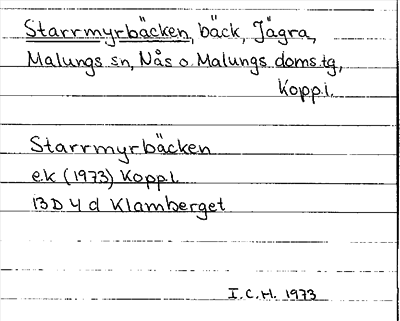 Starrmyrbäcken, bäck, Jägra,
Malungs sn, Nås o Malungs doms.tg,
Kopp.l.
Starrmyrbäcken
e.k (1973) Kopp.l.
13D 4 d Klamberget
I.C.H. 1973